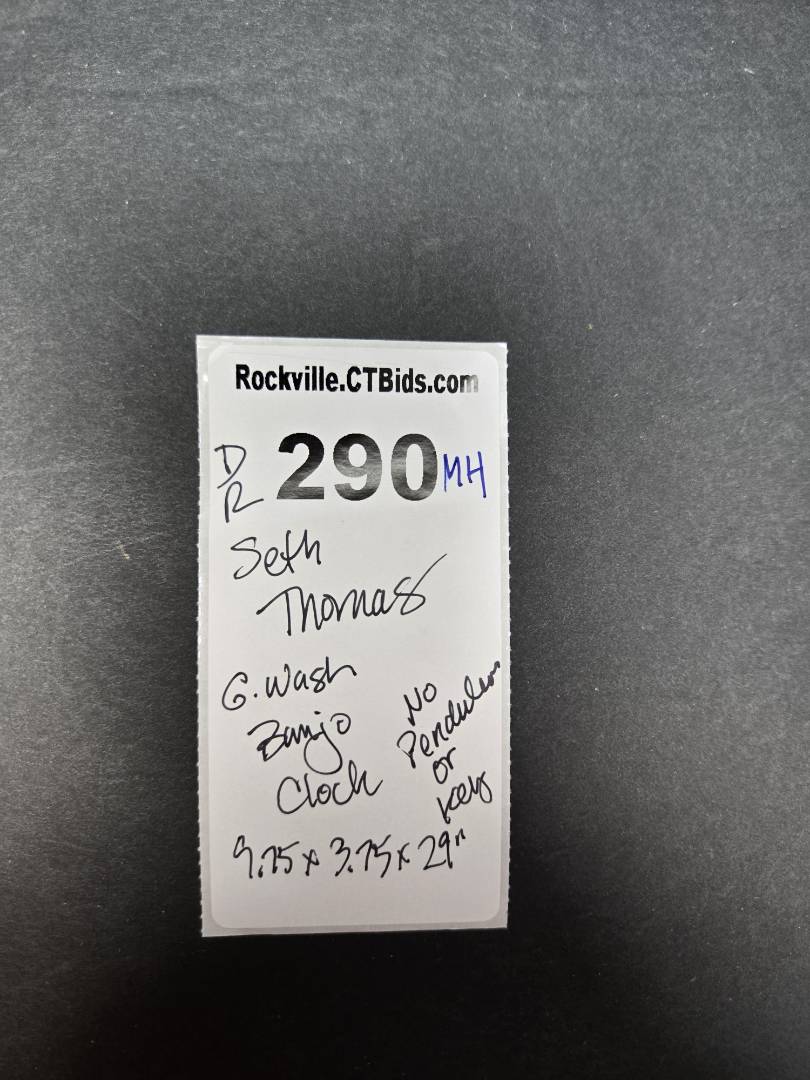 Rockville.CTBids.com
D/R 290 MH
Seth
Thomas
G. Wash
Banjo
Clock
No
Pendulum
or
Key
9.75 x 3.75 x 29"